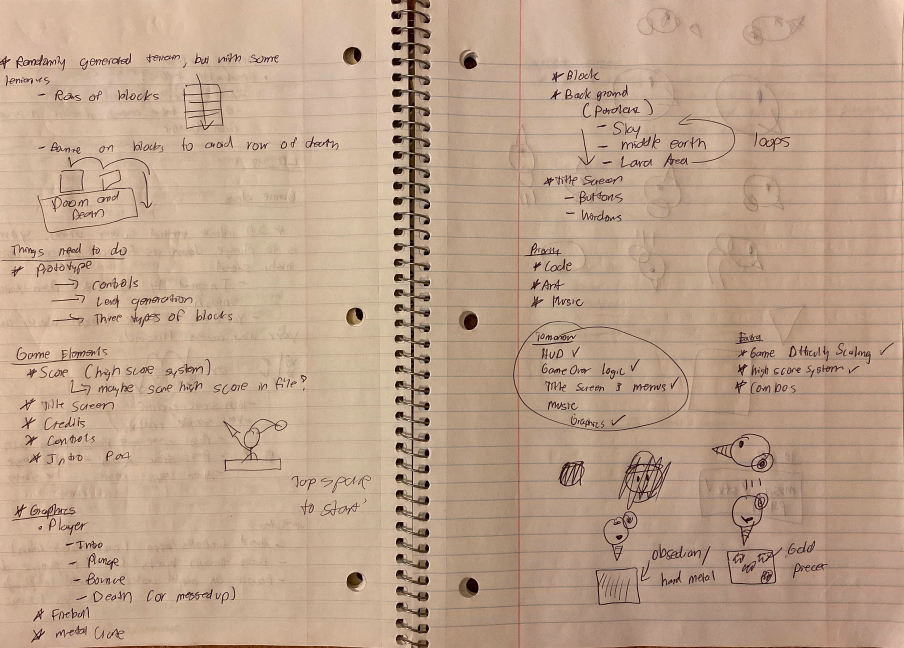 * Randomly generated terrain, but with some
- Rows of blocks
- Bounce on blocks to avoid row of death
Doom and
Death
Things need to do
* Prototype
→ controls
→ Level generation
→ Three types of blocks
Game Elements
* Score (high score system)
↳ maybe save high score in file?
* Title Screen
* Credits
* Controls
* Intro
Tap space
to start'
* Graphics
• Player
- Intro
- Plunge
- Bounce
- Death (or messed up)
* Fireball
* metal
* Block
* Back ground
(Paralax)
- Sky
- middle earth
- Lava Area
loops
* Title Screen
- Buttons
- Windows
* Code
* Art
* Music
Tomorrow
HUD ✓
Game Over logic ✓
Title Screen & menus ✓
music
Graphics ✓
Extra
* Game Difficulty Scaling ✓
* high score system ✓
* Combos
obsedian/
hard metal
Gold